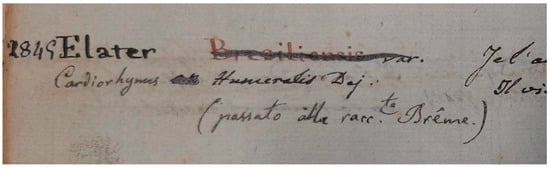 Elater Bresiliensis var. Je l'a
Cardiorhynus Humeralis Dej: Il vi
(passato alla racc.ta Brême.)